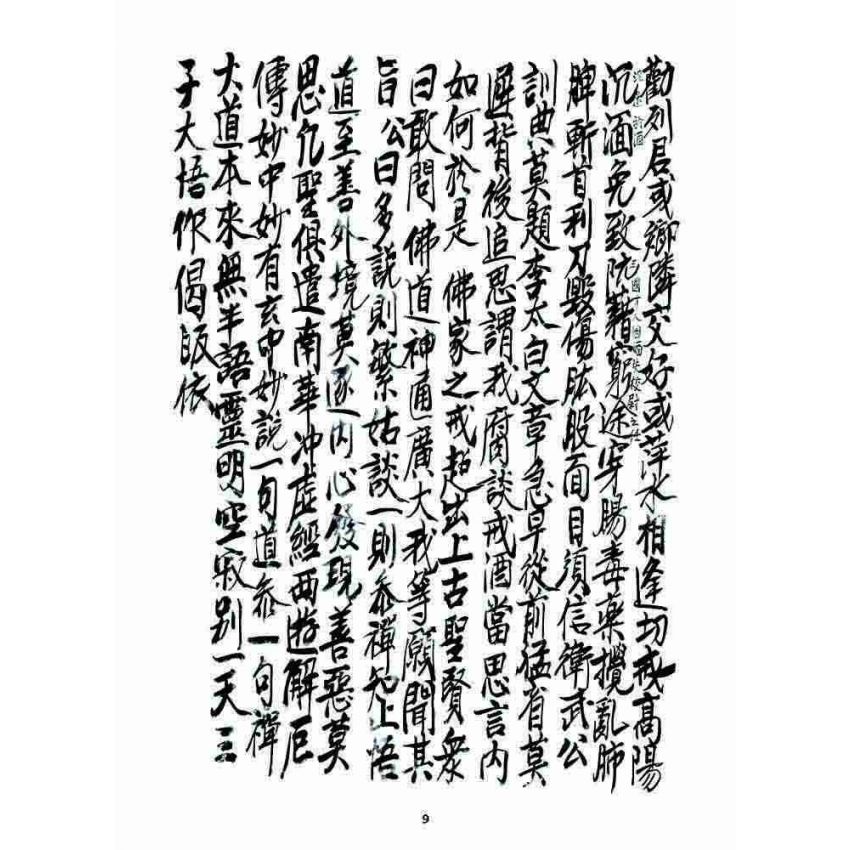 勸列君或鄉隣交好或萍水相逢切戒高陽
沉湎於酒
沉湎免致阮籍窮途穿腸毒藥攪亂肺
三國
脾斬首利刀毀傷肱股面目須信衛武公
訓典莫題李太白文章急早從前猛省莫
遲背後追思謂我腐談戒酒當思言內
如何於是 佛家之戒超出上古聖賢衆
曰敢問佛道神通廣大我等願聞其
旨公曰多說則繁姑談一則叅禪知上悟
道至善外境莫逐內心發現善惡莫
思凡聖俱遣南華冲虛經西遊解厄
傳妙中妙有玄中妙說一句道叅一句禪
大道本來無半語靈明空寂别一天三
子大悟作偈皈依
9